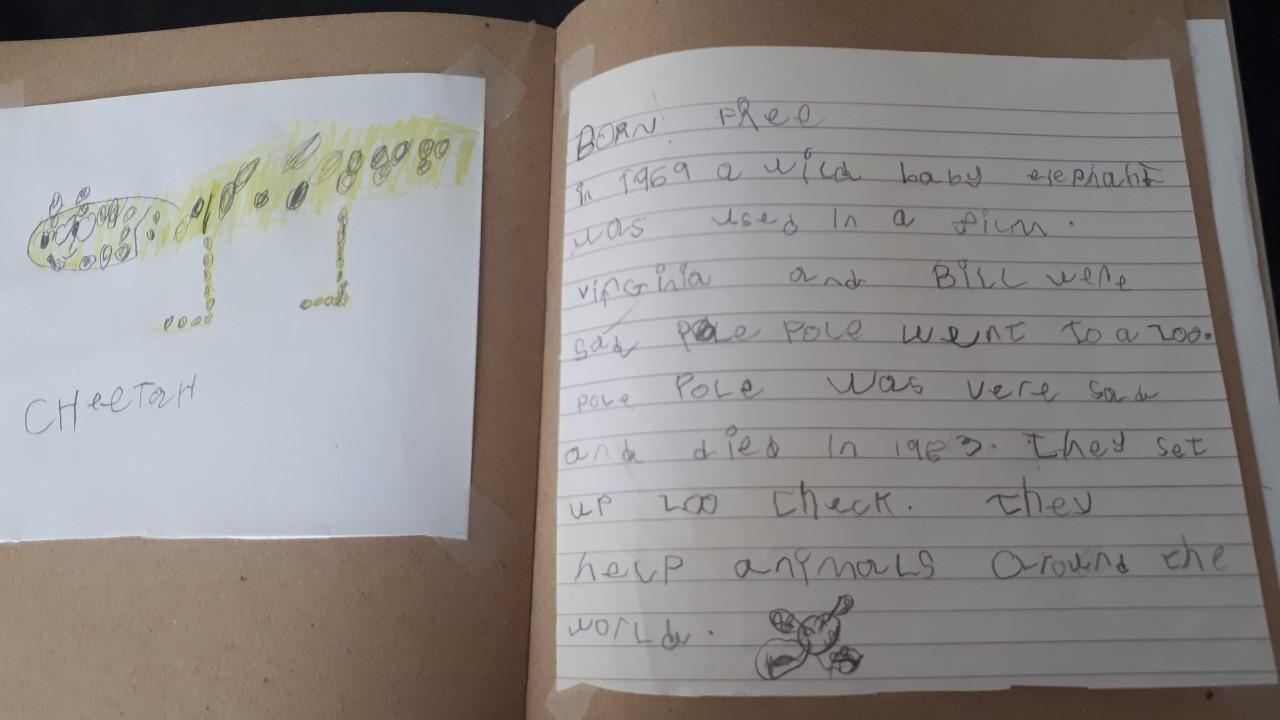 CHeeTaH
BORN FRee
in 1969 a wild baby elephant
was used in a film.
virginia and Bill were
sad pole pole went to a zoo.
pole Pole was vere sad
and died in 1983. They set
up zoo check. They
help anymals around the
world.